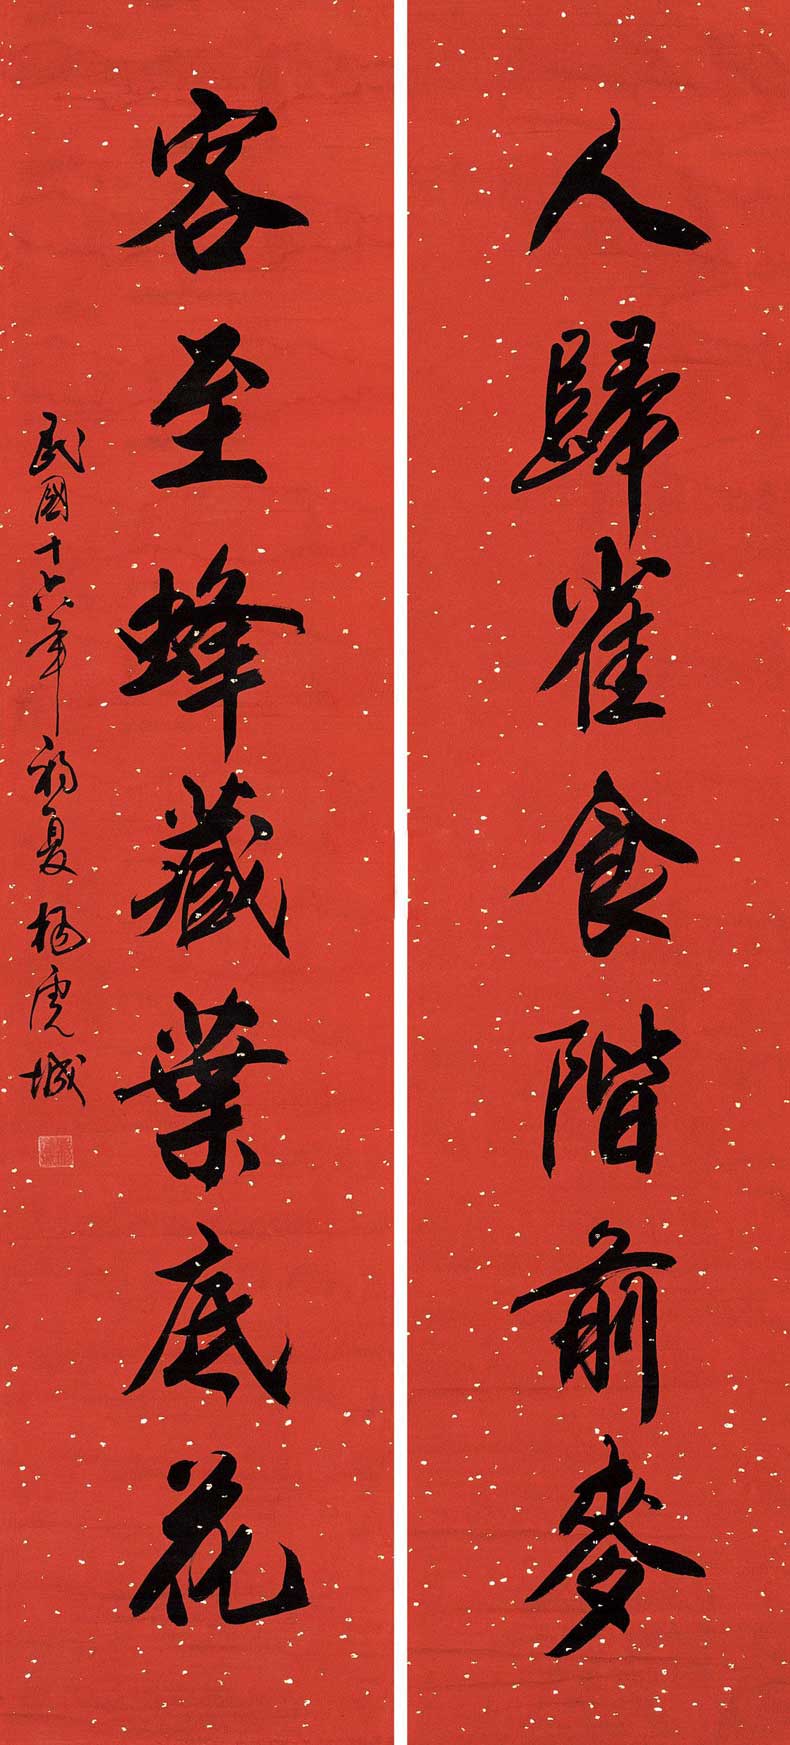 人歸雀食階前麥
客至蜂藏葉底花
民國十六年初夏 楊虎城